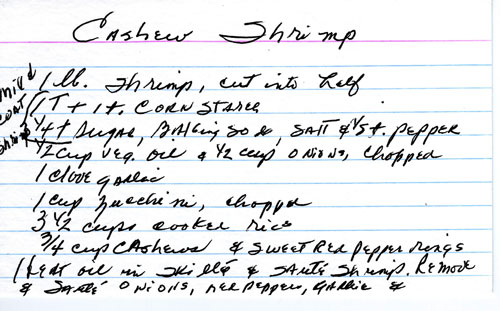 Cashew Shrimp
1 lb. Shrimp, cut into half
Mix &
Coat
Shrimp
1 T + 1 t. Corn Starch
1/4 t Sugar, Baking Soda, Salt & 1/8 t. pepper
1/2 cup veg. oil & 1/2 cup onions, chopped
1 clove garlic
1 cup zucchini, chopped
3 1/2 cups cooked rice
3/4 cup Cashews & Sweet Red Pepper rings
Heat oil in Skillet & Sauté Shrimp. Remove
& Sauté onions, red peppers, garlic &